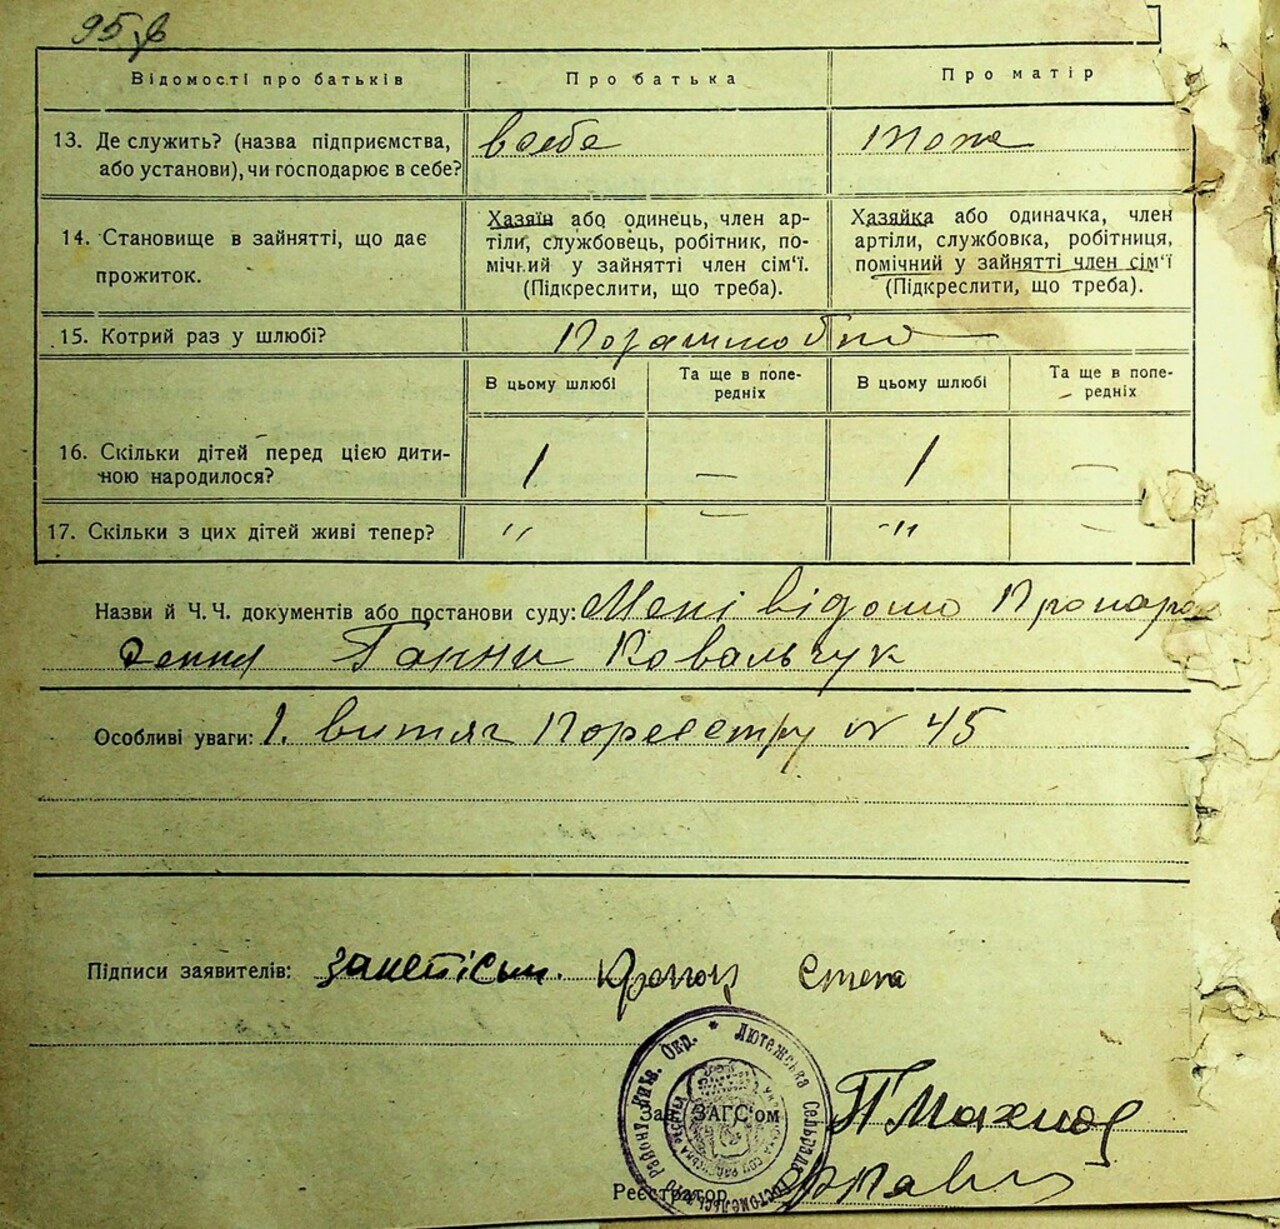 95
Відомості про батьків
Про батька
Про матір
13. Де служить? (назва підприємства,
або установи), чи господарює в себе?
в себе
тоже
14. Становище в зайнятті, що дає
прожиток.
Хазяїн або одинець, член ар-
тіли, службовець, робітник, по-
мічний у зайнятті член сім'ї.
(Підкреслити, що треба).
Хазяйка або одиначка, член
артіли, службовка, робітниця,
помічний у зайнятті член сім'ї
(Підкреслити, що треба).
15. Котрий раз у шлюбі?
Позашлюбно
В цьому шлюбі
Та ще в попе-
редніх
В цьому шлюбі
Та ще в попе-
редніх
16. Скільки дітей перед цією дити-
ною народилося?
1 — 1 —
17. Скільки з цих дітей живі тепер?
" — " —
Назви й Ч. Ч. документів або постанови суду: Мені відомо Про наро
дення Ганни Ковальчук
Особливі уваги: 1. витяг По реєстру № 45
Підписи заявителів:
Лютежська Сельрада Гостомельського Району Київ. Окр.
Зав. ЗАГС'ом
Реєстратор